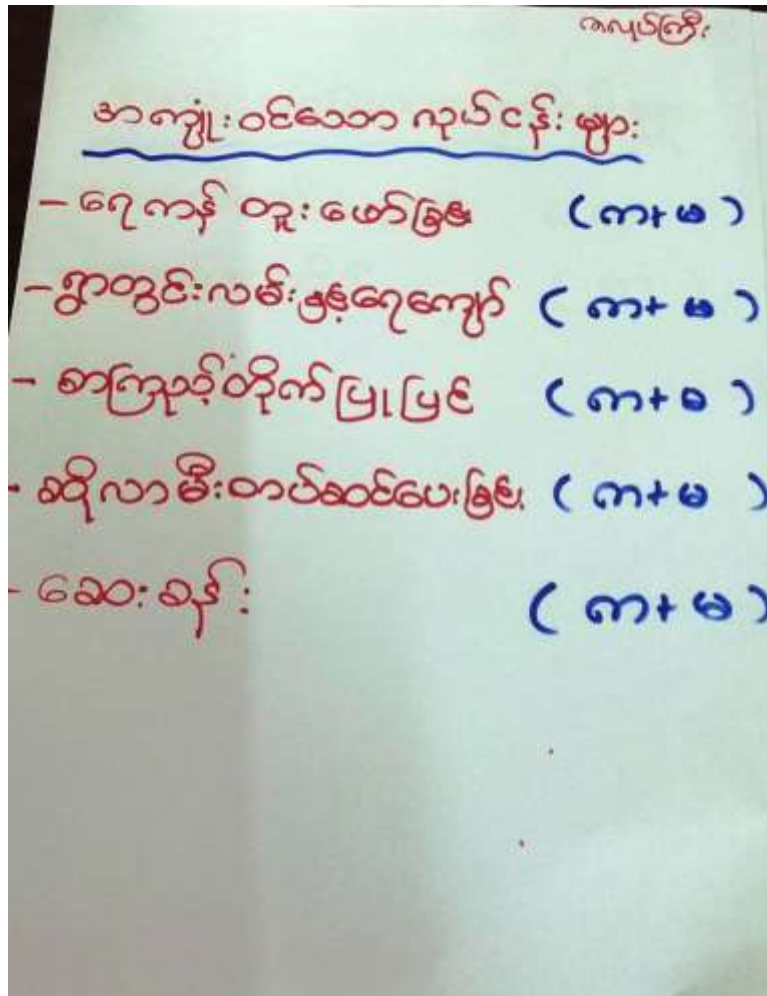 ကလုပ်ကြီး
အကျုံးဝင်သော လုပ်ငန်းများ
- ရေကန် တူးဖော်ခြင်း (ကာ+မ)
- ရွာတွင်းလမ်းနှင့်ရေကျော် (ကာ+မ)
- စာကြည့်တိုက်ပြုပြင် (ကာ+မ)
- ဆိုလာမီးတပ်ဆင်ပေးခြင်း (ကာ+မ)
- ဆေးခန်း (ကာ+မ)